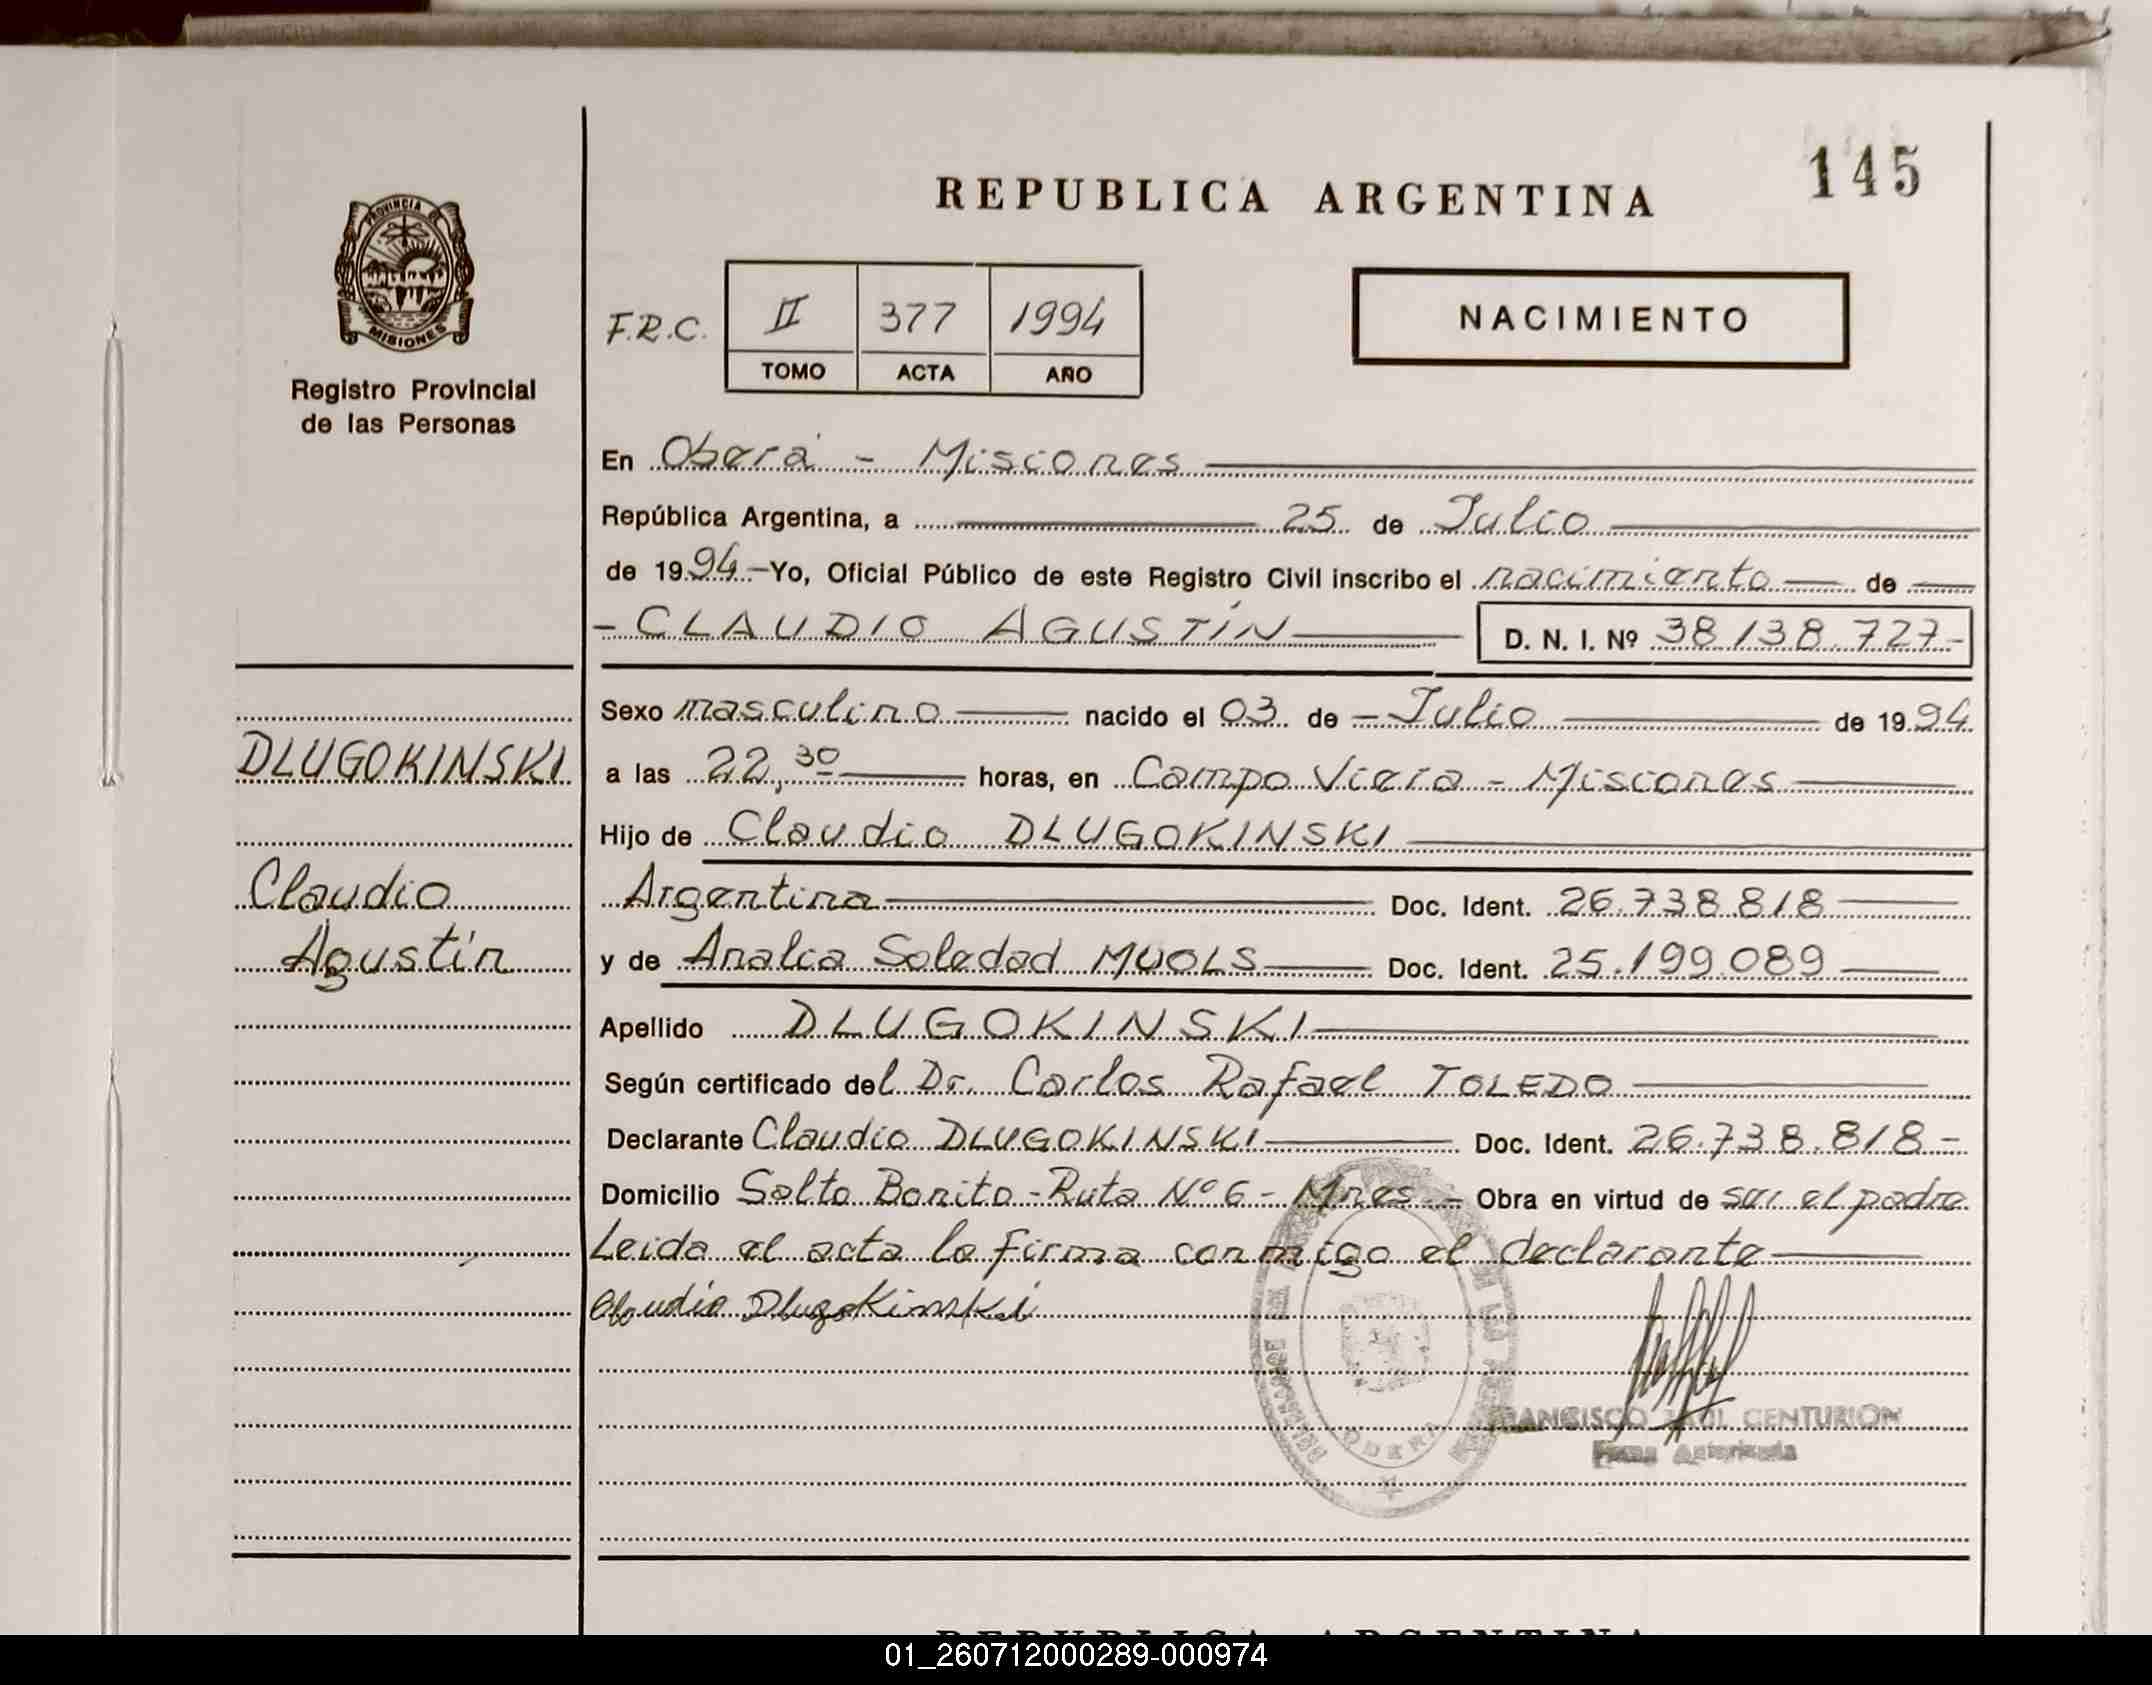 145
REPUBLICA ARGENTINA
PROVINCIA DE
MISIONES
Registro Provincial
de las Personas
F.R.C. II 377 1994
TOMO ACTA AÑO
NACIMIENTO
En Oberá - Misiones
República Argentina, a 25 de Julio
de 1994 - Yo, Oficial Público de este Registro Civil inscribo el nacimiento de
- CLAUDIO AGUSTÍN D. N. I. Nº 38.138.727-
Sexo masculino nacido el 03 de - Julio de 1994
DLUGOKINSKI
a las 22,30 horas, en Campo Viera - Misiones
Hijo de Claudio DLUGOKINSKI
Claudio
Argentina Doc. Ident. 26.738.818
Agustín
y de Analia Soledad MUOLS Doc. Ident. 25.199.089
Apellido DLUGOKINSKI
Según certificado del Dr. Carlos Rafael TOLEDO
Declarante Claudio DLUGOKINSKI Doc. Ident. 26.738.818-
Domicilio Salto Bonito - Ruta Nº 6 - Mnes - Obra en virtud de ser el padre
Leida el acta la firma conmigo el declarante
Claudio Dlugokinski
CENTURION
OBERA
REPUBLICA ARGENTINA
01_260712000289-000974